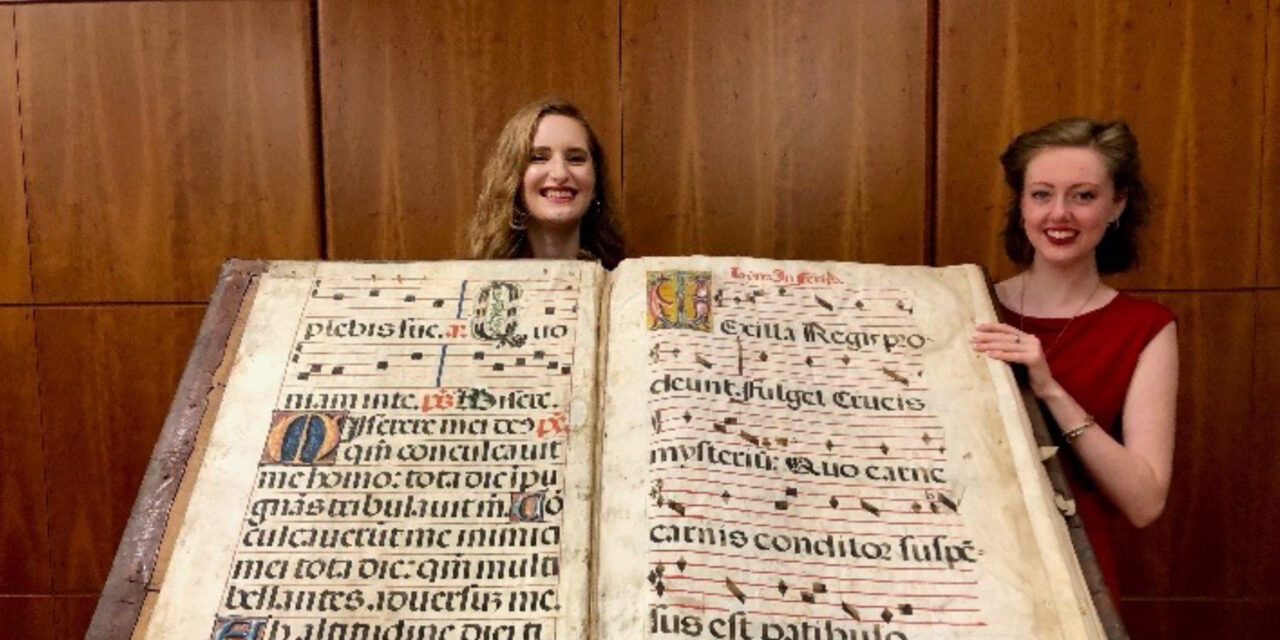 plebis sue. Quo
niam in te. ps Misere.
Miserere mei
qm̃ conculcauit
me homo: tota die ipu
gnãs tribulauit m̃. Cõ
culcauerũt me inimici
mei tota die: qm̃ multi
bellantes. aduersuz me.
Ab altitudine diei ti
VExilla Regis pro-
deunt. fulget Crucis
mysteriũ: Quo carne
carnis conditor suspẽ-
sus est patibulo